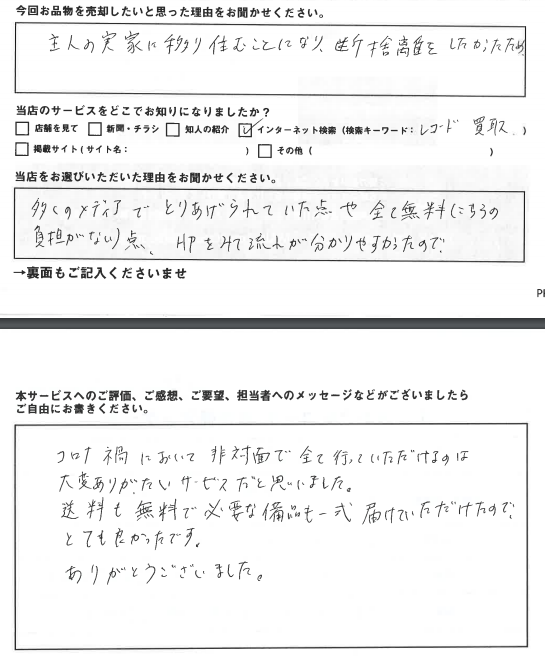 今回お品物を売却したいと思った理由をお聞かせください。
主人の実家に移り住むことになり、断捨離をしたかったため
当店のサービスをどこでお知りになりましたか？
□ 店舗を見て □ 新聞・チラシ □ 知人の紹介 ☑ インターネット検索（検索キーワード：レコード 買取 ）
□ 掲載サイト（サイト名： ） □ その他（ ）
当店をお選びいただいた理由をお聞かせください。
多くのメディアでとりあげられていた点や全て無料（こちらの
負担がない）点、HPをみて流れが分かりやすかったので。
→裏面もご記入くださいませ
本サービスへのご評価、ご感想、ご要望、担当者へのメッセージなどがございましたら
ご自由にお書きください。
コロナ禍において非対面で全て行っていただけるのは
大変ありがたいサービスだと思いました。
送料も無料で必要な備品も一式届けていただけたので、
とても良かったです。
ありがとうございました。